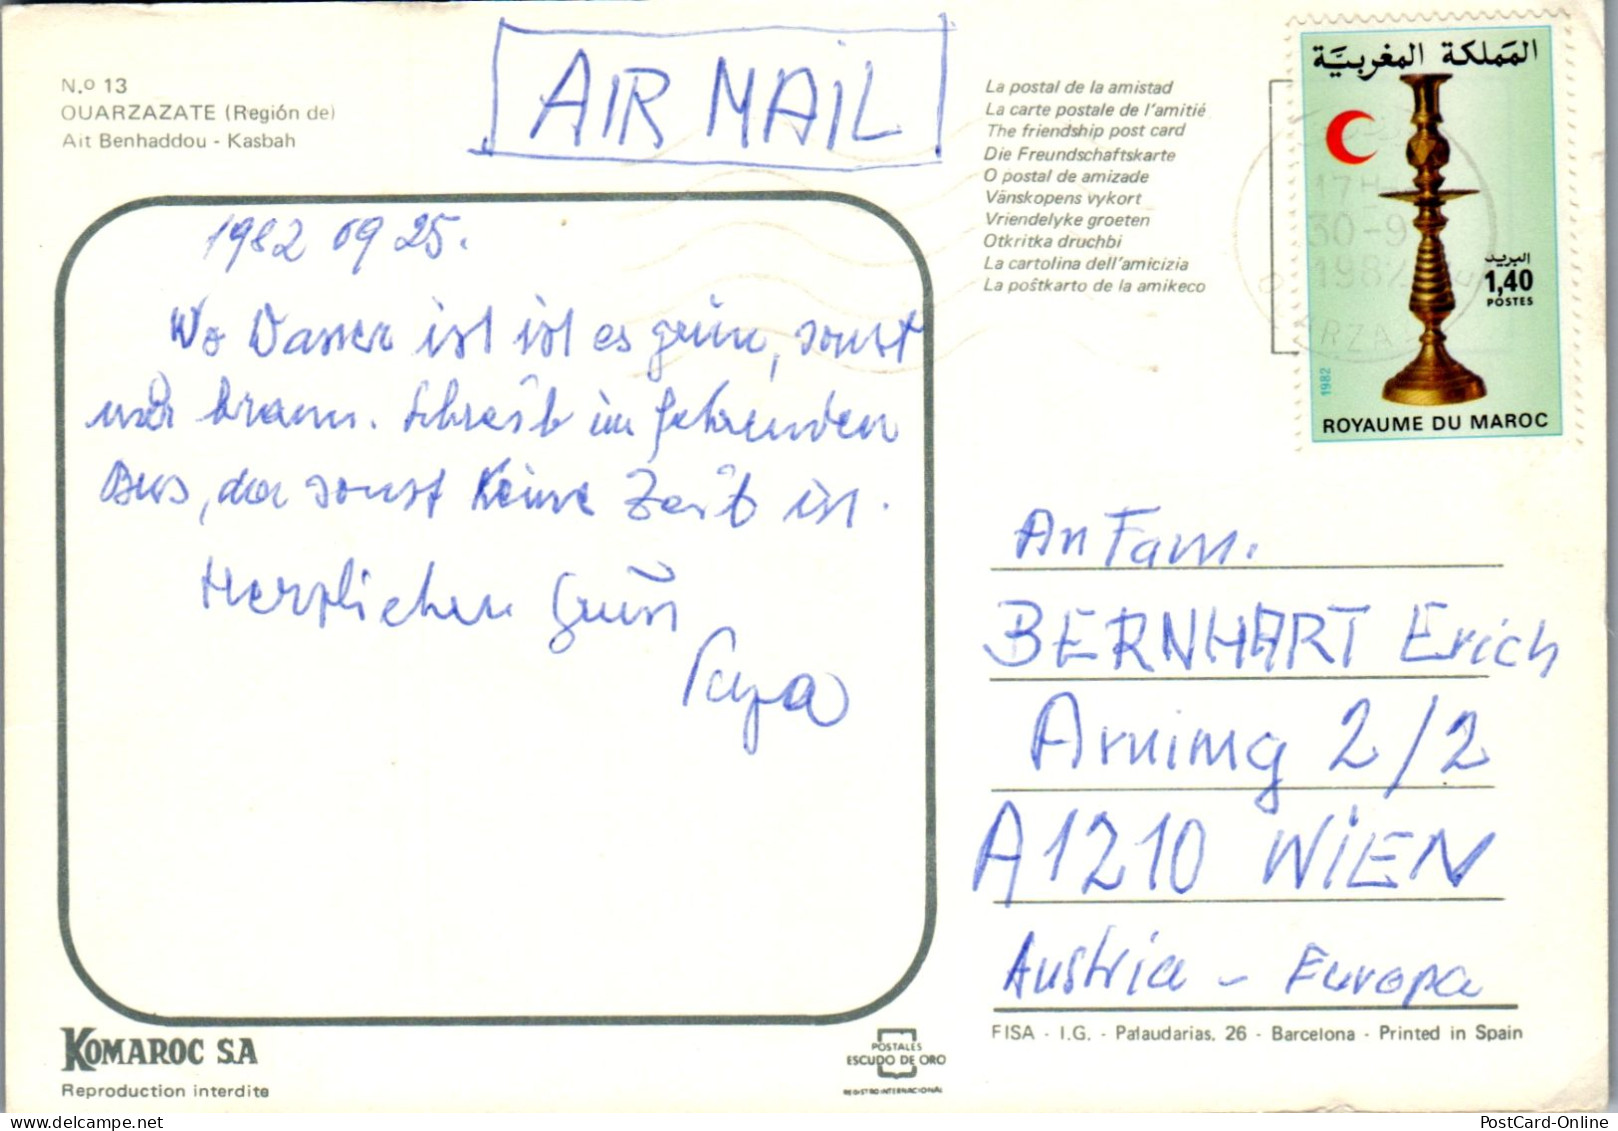 N.º 13
OUARZAZATE (Región de)
Ait Benhaddou - Kasbah
AIR MAIL
La postal de la amistad
La carte postale de l'amitié
The friendship post card
Die Freundschaftskarte
O postal de amizade
Vänskopens vykort
Vriendelyke groeten
Otkritka druchbi
La cartolina dell'amicizia
La poŝtkarto de la amikeco
المملكة المغربية
البريد
1,40
POSTES
1982
ROYAUME DU MAROC
17H
30-9
1982
1982 09 25.
Wo Wasser ist ist es grün, sonst
nur braun. Schreib im fahrenden
Bus, da sonst keine Zeit ist.
Herzlichen Gruss
Papa
An Fam.
BERNHART Erich
Arnimg 2/2
A1210 WIEN
Austria - Europa
KOMAROC S.A
Reproduction interdite
POSTALES
ESCUDO DE ORO
REGISTRO INTERNACIONAL
FISA - I.G. - Palaudarias, 26 - Barcelona - Printed in Spain
PostCard-Online